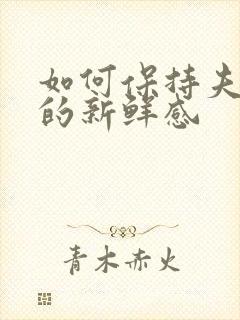 如何保持夫
的新鲜感
青木赤火